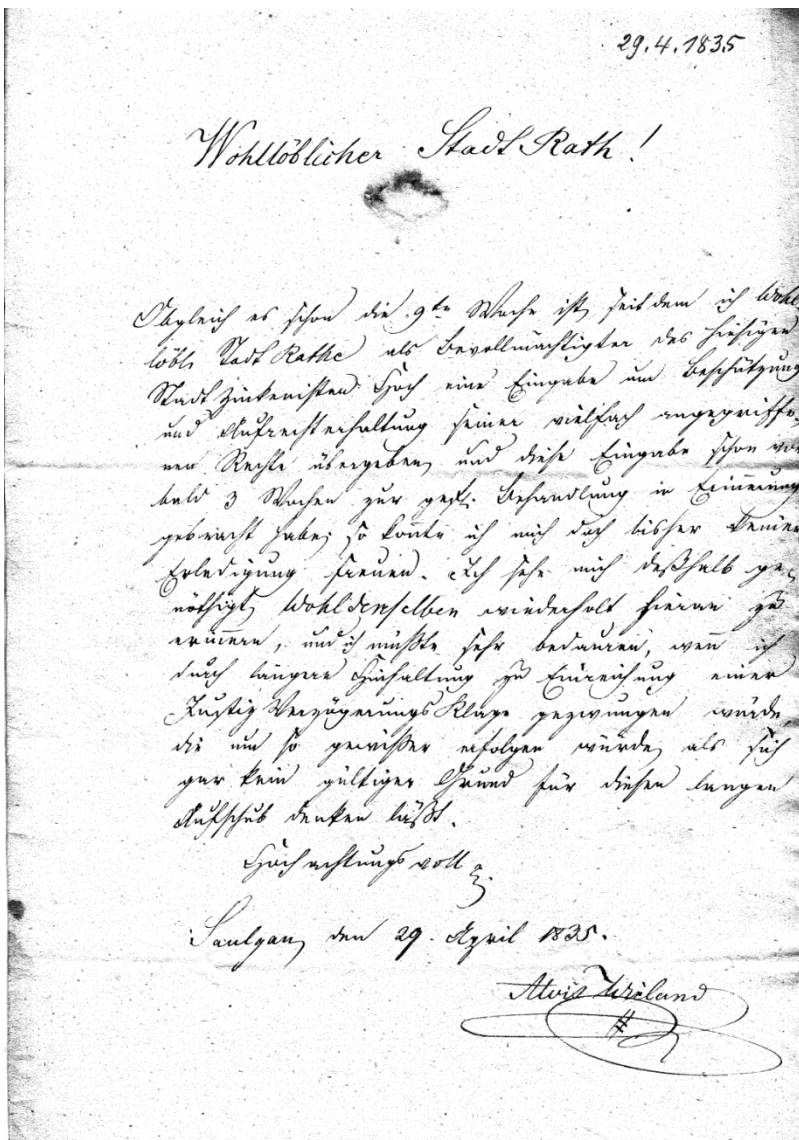 29.4.1835
Wohllöblicher Stadt Rath!
Obgleich es schon die 9te Woche ist, seit dem ich Wohl
löbl. Stadt Rathe als Bevollmächtigter des hiesigen
Stadt Zinkenisten Hoch eine Eingabe um Beschützung
und Aufrechterhaltung seiner vielfach angegriffe-
nen Rechte übergeben, und diese Eingabe schon vor
bald 3 Wochen zur gefl. Behandlung in Erinnerung
gebracht habe; so konnte ich mich doch bisher keiner
Erledigung freuen. Ich sehe mich deßhalb ge-
nöthigt, Wohldenselben wiederholt hieran zu
erinnern, und ich müßte sehr bedauren, wenn ich
durch längere Hinhaltung zu Einreichung einer
Justiz Verzögerungs Klage gezwungen würde,
die um so gewißer erfolgen würde, als sich
gar kein gültiger Grund für diesen langen
Aufschub denken läßt.
Hochachtungsvoll
Saulgau, den 29. April 1835.
Alois Wieland